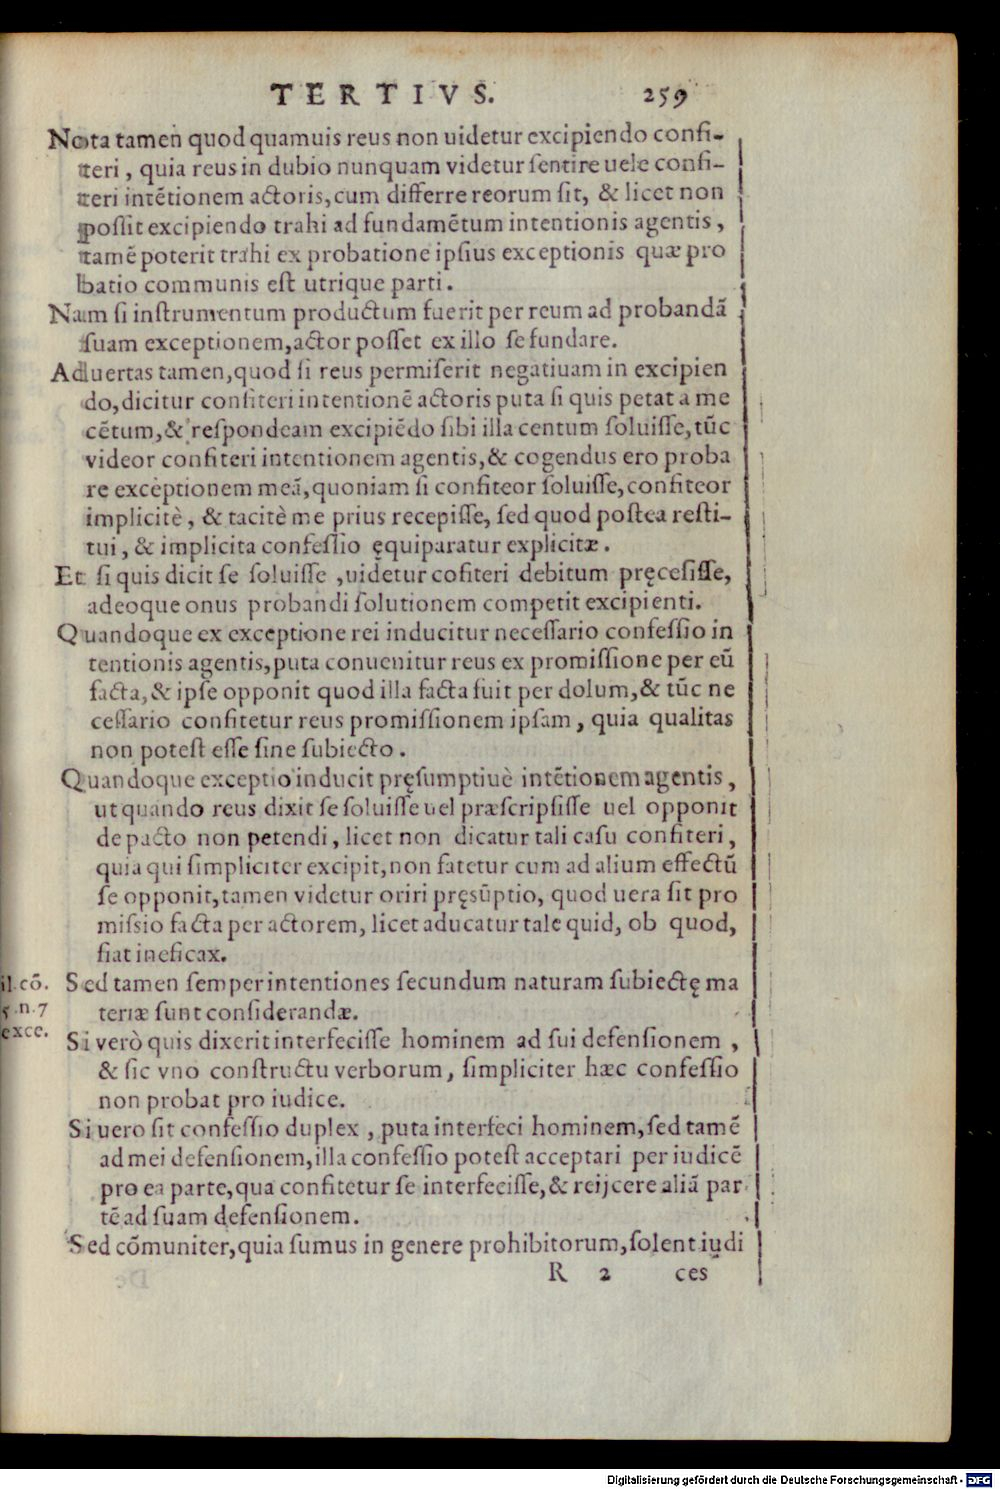 TERTIVS. 259
Nota tamen quod quamuis reus non uidetur excipiendo confi-
teri, quia reus in dubio nunquam videtur sentire uele confi-
teri intētionem actoris, cum differre reorum sit, & licet non
possit excipiendo trahi ad fundamētum intentionis agentis,
tamē poterit trahi ex probatione ipsius exceptionis quæ pro
batio communis est utrique parti.
Nam si instrumentum productum fuerit per reum ad probandā
suam exceptionem, actor posset ex illo se fundare.
Aduertas tamen, quod si reus permiserit negatiuam in excipien
do, dicitur confiteri intentionē actoris puta si quis petat a me
cētum, & respondeam excipiēdo sibi illa centum soluisse, tūc
videor confiteri intentionem agentis, & cogendus ero proba
re exceptionem meā, quoniam si confiteor soluisse, confiteor
implicitè, & tacitè me prius recepisse, sed quod postea resti-
tui, & implicita confessio ęquiparatur explicitæ.
Et si quis dicit se soluisse, uidetur cofiteri debitum pręcesisse,
adeoque onus probandi solutionem competit excipienti.
Quandoque ex exceptione rei inducitur necessario confessio in
tentionis agentis, puta conuenitur reus ex promissione per eū
facta, & ipse opponit quod illa facta fuit per dolum, & tūc ne
cessario confitetur reus promissionem ipsam, quia qualitas
non potest esse sine subiecto.
Quandoque exceptio inducit pręsumptiuè intētionem agentis,
ut quando reus dixit se soluisse uel præscripsisse uel opponit
de pacto non petendi, licet non dicatur tali casu confiteri,
quia qui simpliciter excipit, non fatetur cum ad alium effectū
se opponit, tamen videtur oriri pręsūptio, quod uera sit pro
missio facta per actorem, licet aducatur tale quid, ob quod,
fiat ineficax.
il. cō. Sed tamen semper intentiones secundum naturam subiectę ma
5 .n.7 teriæ sunt considerandæ.
exce. Si verò quis dixerit interfecisse hominem ad sui defensionem,
& sic vno constructu verborum, simpliciter hæc confessio
non probat pro iudice.
Si uero sit confessio duplex, puta interfeci hominem, sed tamē
ad mei defensionem, illa confessio potest acceptari per iudicē
pro ea parte, qua confitetur se interfecisse, & reijcere aliā par
tē ad suam defensionem.
Sed cōmuniter, quia sumus in genere prohibitorum, solent iudi
R 2 ces
Digitalisierung gefördert durch die Deutsche Forschungsgemeinschaft - DFG